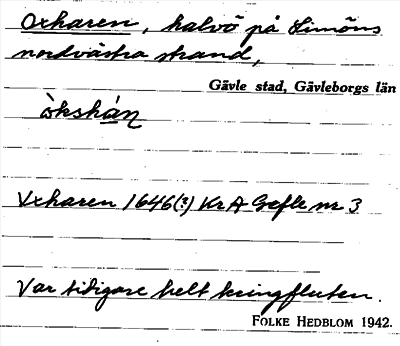 Oxharen, halvö på Limöns
nordvästra strand,
Gävle stad, Gävleborgs län
òkshán
Vxharen 1646(?) Kr A Gefle nr 3
Var tidigare helt kringfluten.
FOLKE HEDBLOM 1942.